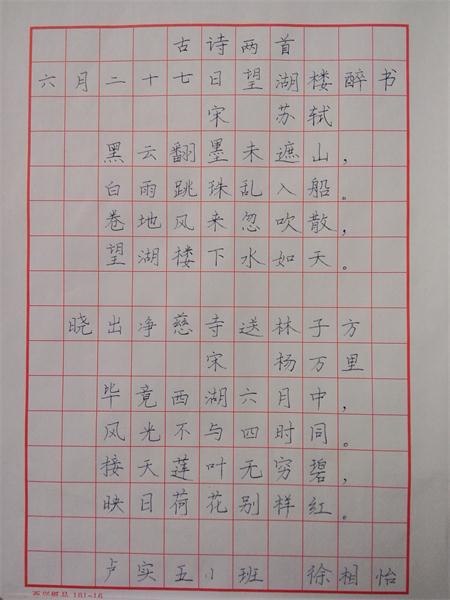 古诗两首
六月二十七日望湖楼醉书
宋 苏轼
黑云翻墨未遮山，
白雨跳珠乱入船。
卷地风来忽吹散，
望湖楼下水如天。
晓出净慈寺送林子方
宋 杨万里
毕竟西湖六月中，
风光不与四时同。
接天莲叶无穷碧，
映日荷花别样红。
卢实五小班 徐相怡
101-16